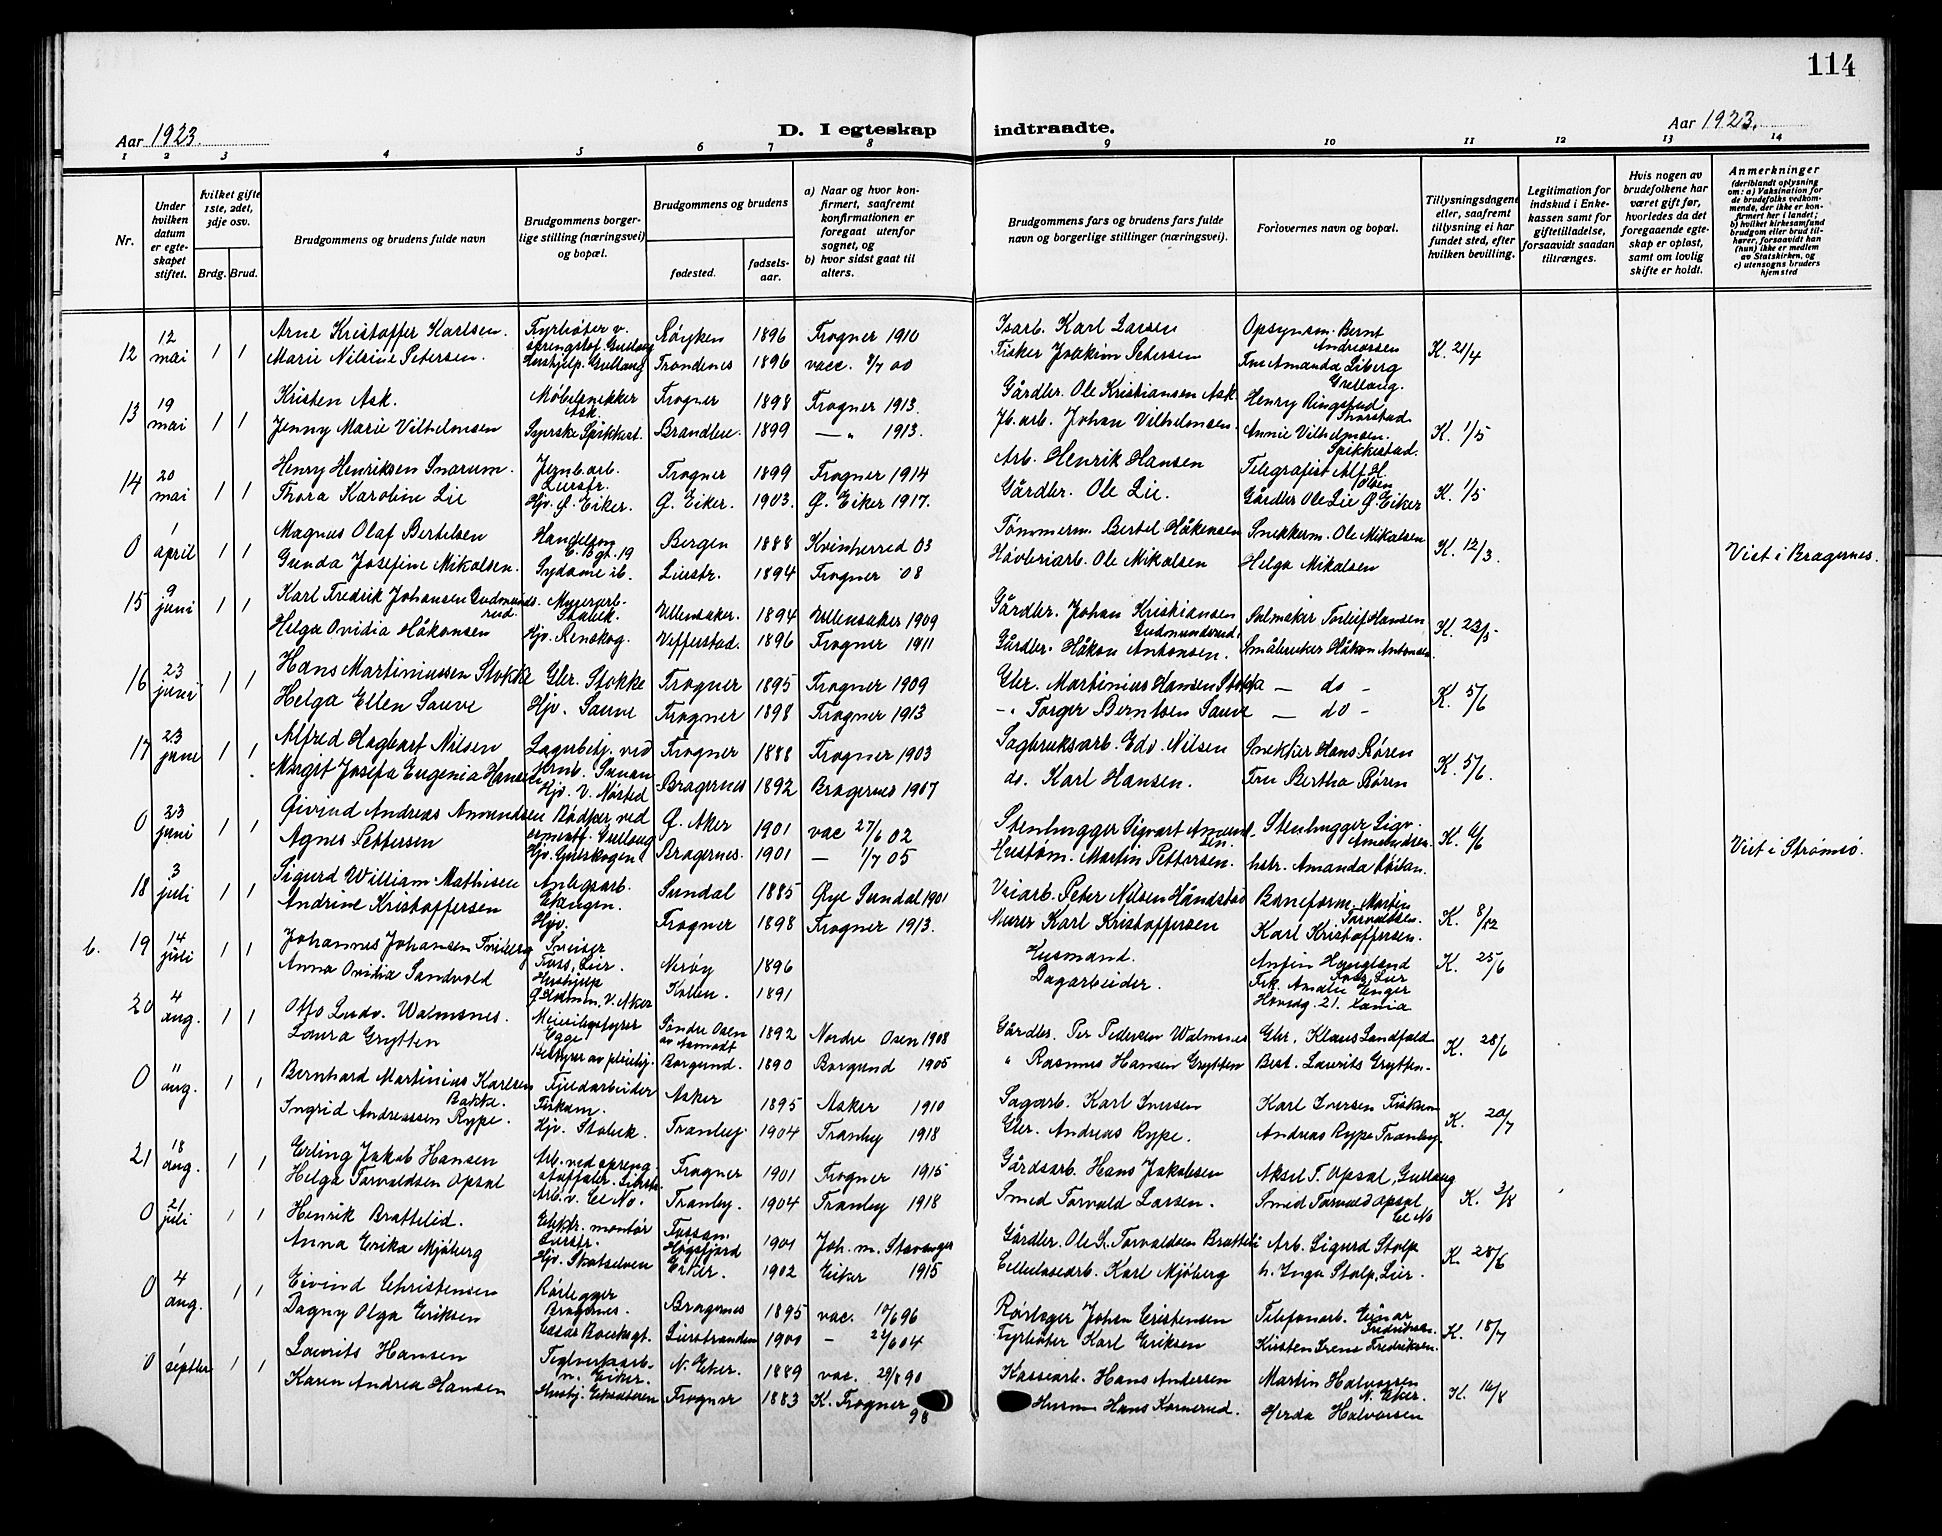 114
Aar 1923.
D. I egteskap indtraadte.
Aar 1923.
1 2 3 4 5 6 7 8 9 10 11 12 13 14
Nr.
Under hvilken datum er egteskapet stiftet.
hvilket gifte 1ste, 2det, 3dje osv.
Brdg. Brud.
Brudgommens og brudens fulde navn
Brudgommens borgerlige stilling (næringsvei) og bopæl.
Brudgommens og brudens
fødested.
fødselsaar.
a) Naar og hvor konfirmert, saafremt konfirmationen er foregaat utenfor sognet, og
b) hvor sidst gaat til alters.
Brudgommens fars og brudens fars fulde navn og borgerlige stillinger (næringsvei).
Forlovernes navn og bopæl.
Tillysningsdagene eller, saafremt tillysning ei har fundet sted, efter hvilken bevilling.
Legitimation for indskud i Enkekassen samt for giftetilladelse, forsaavidt saadan tiltrænges.
Hvis nogen av brudefolkene har været gift før, hvorledes da det foregaaende egteskap er opløst, samt om lovlig skifte er holdt.
Anmerkninger (deriblandt oplysning om: a) Vaksination for de brudefolks vedkommende, der ikke er konfirmert her i landet; b) hvilket kirkesamfund brudgom eller brud tilhører, forsaavidt han (hun) ikke er medlem av Statskirken, og c) utensogns bruders hjemsted
12 12 mai 1 1 Arne Kristoffer Karlsen. Fyrbøter v. sprængstof. Gullaug Røyken 1896 Frogner 1910 Isarb. Karl Larsen Opsynsm. Bernt Andreassen K. 21/4
Marie Nilsine Petersen. Hushjelp. Gullaug Trondenes 1896 vacc. 8/7 00 Fisker Joakim Petersen Frue Amanda Liberg Gullaug.
13 19 mai 1 1 Kristen Ask. Møbelsnekker Ask. Frogner 1898 Frogner 1913. Gårdbr. Ole Kristiansen Ask. Henry Ringstad K. 1/5
Jenny Marie Vilhelmsen Syerske Spikkest. 1899 — " 1913. Jb. arb. Johan Vilhelmsen. Annie Vilhelmsen. Spikkestad.
14 20 mai 1 1 Henry Henriksen Snarum. Jernb. arb. Lierstr. Frogner 1899 Frogner 1914 Arb. Henrik Hansen Telegrafist Alf H. Olsen K. 1/5
Thora Karoline Lie Hjv. Ø. Eiker. Ø. Eiker. 1903. Ø. Eiker 1917. Gårdbr. Ole Lie. Gårdbr Ole Lie Ø. Eiker
0 1 april 1 1 Magnus Olaf Bertelsen Bergen 1888 Kvinherred 03 Tømmerm. Bertel Håkensen Snekkerm. Ole Mikalsen K. 12/3. Viet i Bragernes.
Gunda Josefine Mikalsen. Sydame ib. Lierstr. 1894 Frogner 08 Høvleriarb. Ole Mikalsen Helga Mikalsen
15 9 juni 1 1 Karl Fredrik Johansen Gudmundsrud. Ullensaker. 1894 Ullensaker 1909 Gårdbr. Johan Kristiansen Gudmundsrud. Salmaker Torleif Hansen K. 23/5
Helga Ovidia Håkonsen Hjv. Renskog. 1896 Frogner 1911 Gårdbr. Håkon Antonsen. Småbruker Håkon Antonsen.
16 23 juni 1 1 Hans Martiniussen Stokke Gbr. Stokke Frogner 1895 Frogner 1909 Gbr. Martinius Hansen Stokke — do - K. 5/6
Helga Ellen Sauve Hjv. Sauve Frogner 1898 Frogner 1913 - " Torger Berntsen Sauve — do -
17 23 juni 1 1 Alfred Hagbart Nilsen Lagerbetj. ved Frogner 1888 Frogner 1903 Sagbruksarb. Edv. Nilsen Snekker Hans Røren K. 5/6.
Margit Josefa Eugenia Hansen Hjv. V. Nøsted Bragernes 1892 Bragernes 1907 do. Karl Hansen. Fru Bertha Røren
0 23 juni 1 1 Eivind Andreas Amundsen Gullaug Ø. Aker 1901 vac 27/6 02 Stenhugger Sigvart Amundsen. Stenhugger Sigv. Amundsen. K. 6/6 Viet i Strømsø.
Agnes Pettersen Bragernes. 1901 — 1/7 05 Martin Pettersen. Amanda
18 3 juli 1 1 Sigurd William Mathisen Anlegsarb. Sundal 1885 Øye Sundal 1901 Veiarb. Peter Nilsen Håndstad Baneform. Martin Torvaldsen. K. 8/12
Andrine Kristoffersen Hjv. Frogner 1898 Frogner 1913. Murer Karl Kristoffersen Karl Kristoffersen.
b. 19 14 juli 1 1 Johannes Johansen Friberg Foss, Lier. Nerøy 1896 Husmand. Anfin Haugland Foss, Lier K. 25/6
Anna Ovidia Sandvold Hushjelp V. Aker Kollen. 1891 Dagarbeider. Frk. Amalie Unger
20 4 aug. 1 1 Otto Ludv. Walmsnes. Meieribestyrer Egge Søndre Osen 1892 Nordre Osen 1908 Gårdbr. Per Pedersen Walmsnes Gbr. Klaus Landfald K. 28/6
Laura Grytten Bestyrer av pleiehj. Borgund. 1890 Borgund 1905 " Rasmus Hansen Grytten Best. Lavrits Grytten.
0 11 aug. 1 1 Bernhard Martinius Karlsen Bakke. Fjeldarbeider Fiskum. Asker 1895 Asker 1910 Sagarb. Karl Iversen Karl Iversen Fiskum K. 20/7
Ingrid Andreassen Rype. Hjv. Tranby. 1904 Tranby 1918 Gbr. Andreas Rype. Andreas Rype Tranby.
21 18 aug. 1 1 Erling Jakob Hansen Arb. ved spreng Frogner 1901 Frogner 1915 Gårdsarb. Hans Jakobsen Aksel T. Opsal, Gullaug K. 3/8
Helga Torvaldsen Opsal Arb. v. El No. Tranby. 1904 Tranby 1918 Smed Torvald Larsen. Smed Torvald Opsal El No
0 21 juli 1 1 Henrik Brattelid. Elektr. montør Lierstr. Fossan Høgsfjord 1901 Joh. m. Stavanger Gårdbr. Ole S. Torvaldsen Bratteli Arb. Sigurd Stolp K. 28/6
Anna Erika Mjøberg Hjv. Skotselven Eiker. 1902 Eiker 1915 Cellulosearb. Karl Mjøberg h. Inga Stolp, Lier.
0 4 aug. 1 1 Eivind Christensen Rørlegger Bragernes. Bragernes 1895 vac. 10/6 96 Rørlegger Johan Cristensen Telefonarb. Einar Fredriksen. K. 18/7
Dagny Olga Eriksen Lierstranden 1900 - 24/6 04 Fyrbøter Karl Eriksen Kirsten Irene Fredriksen.
0 1 septbr 1 1 Lavrits Hansen Teglverksarb. N. Eiker. N. Eker. 1889 vac. 29/8 90 Kassearb. Hans Andersen Martin Halvorsen N. Eker. K. 14/8
Karen Andrea Hansen Frogner 1883 K. Frogner 98 Husm Hans Kornerud. Herda Halvorsen